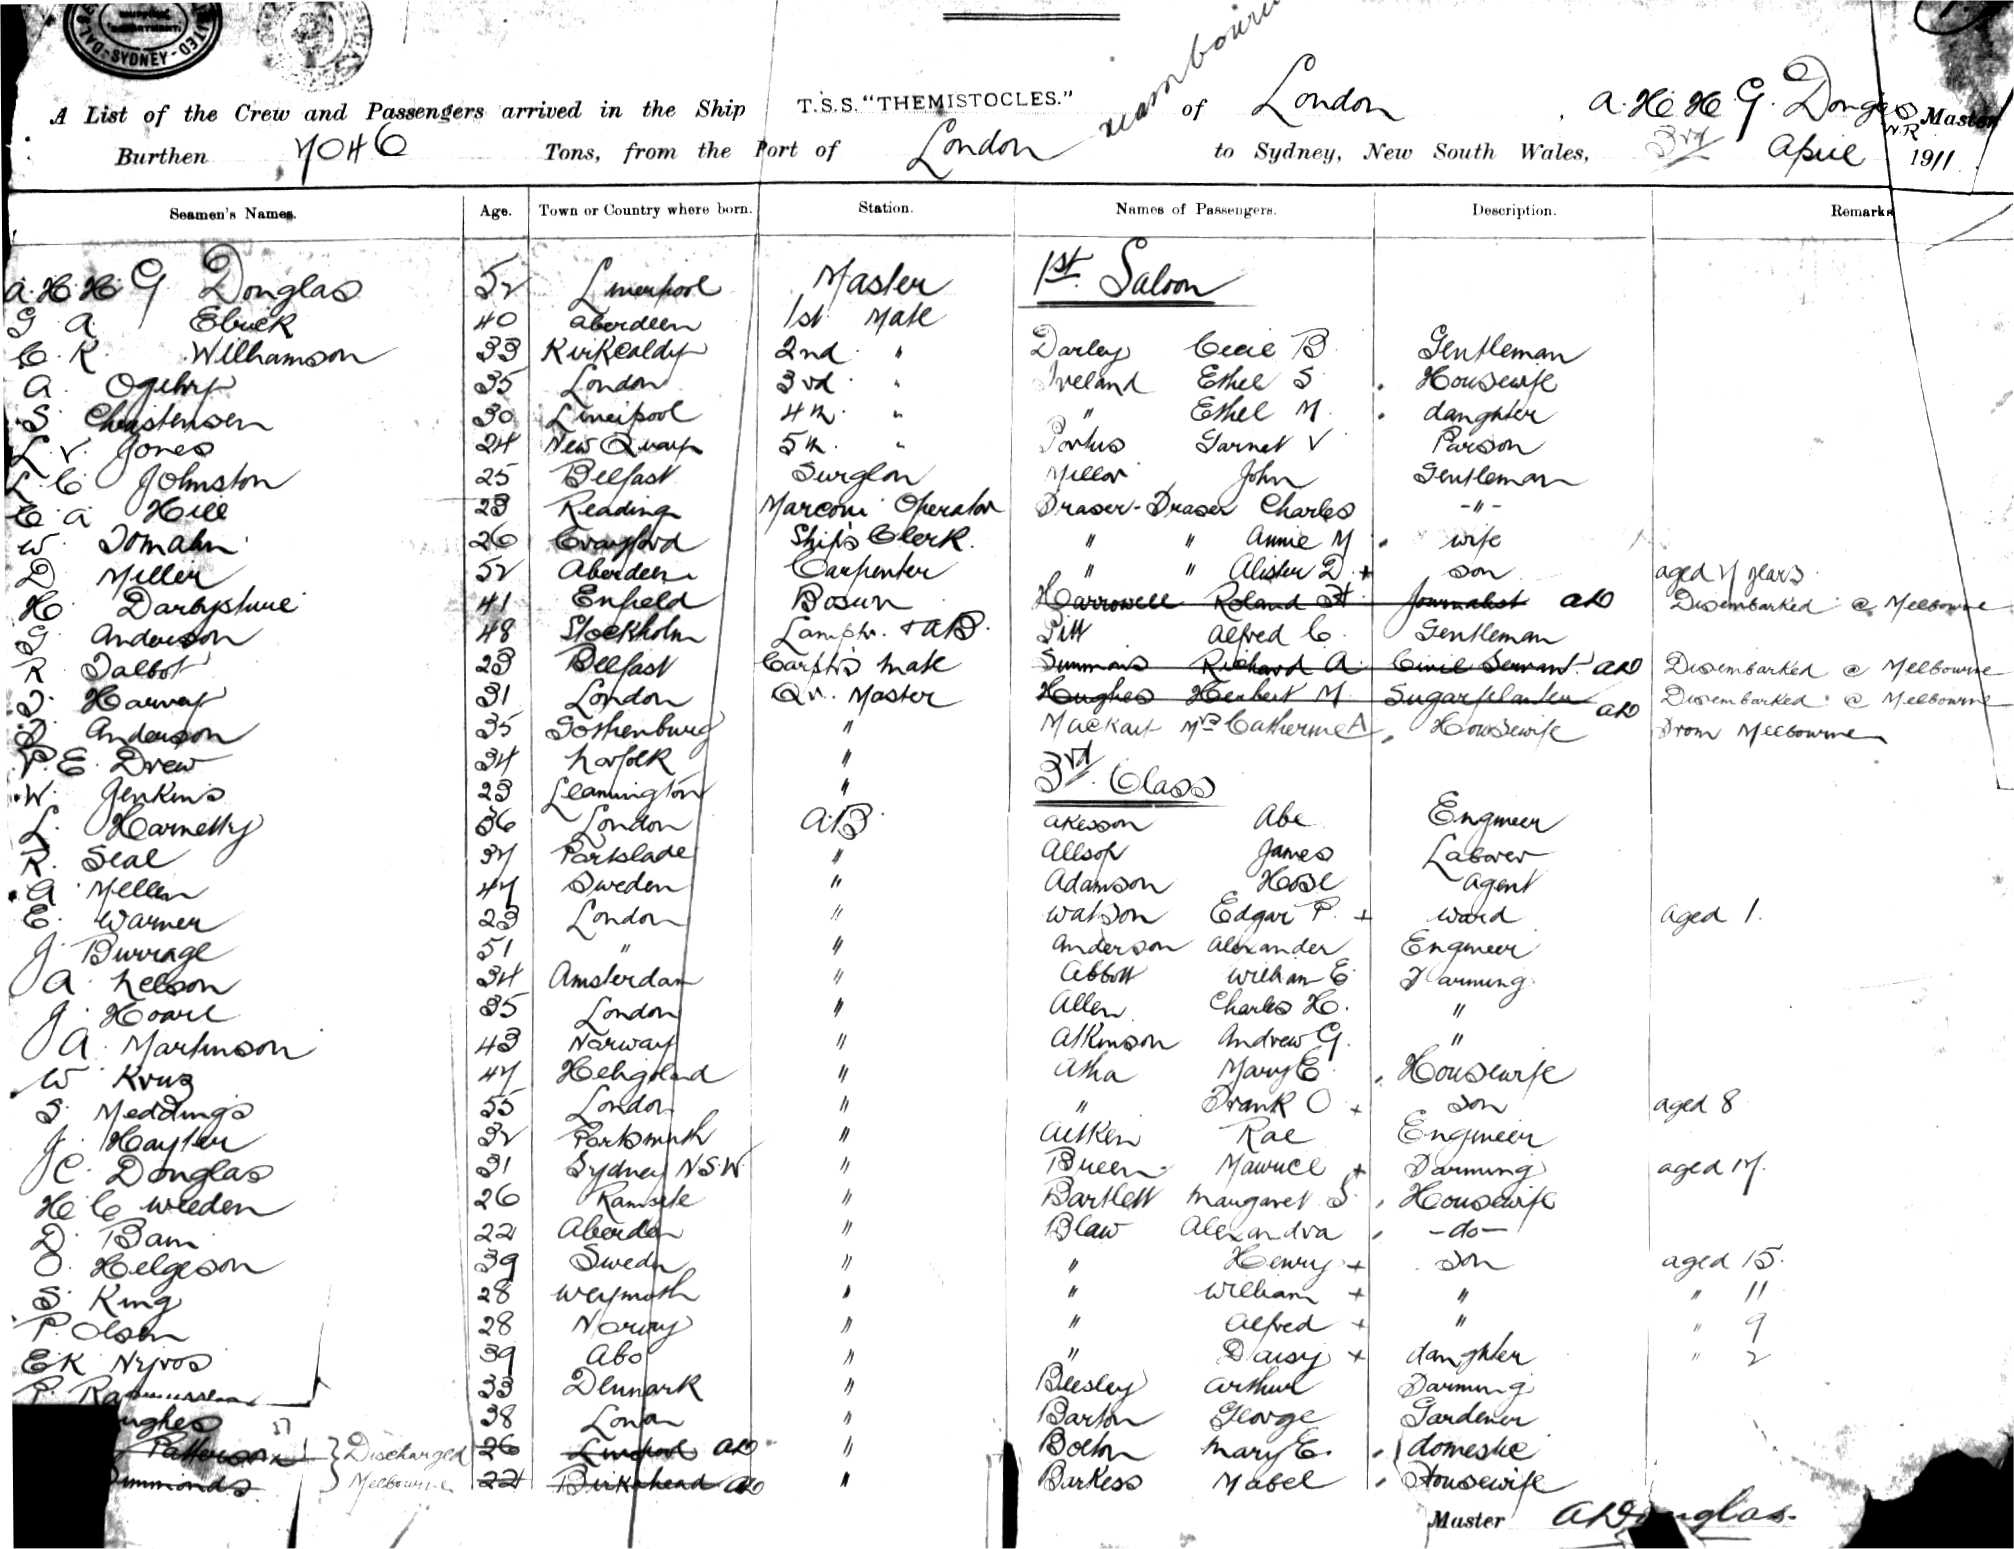 SYDNEY
A List of the Crew and Passengers arrived in the Ship T.S.S. "THEMISTOCLES." of London A. H. H. G. Douglas Master
Burthen 7046 Tons, from the Port of London to Sydney, New South Wales, 3rd April 1911
Seamen's Names. Age. Town or Country where born. Station. Names of Passengers. Description. Remarks
A. H. H. G Douglas 52 Liverpool Master 1st. Saloon
G A 40 Aberdeen 1st Mate
C. R. Williamson 33 Kirkcaldy 2nd " Darley Cecil B. Gentleman
A. Ogilvy 35 London 3rd " Ireland Ethel S. Housewife
S. Christensen 30 Liverpool 4th " " Ethel M. daughter
L. V. Jones 24 New Quay 5th " Portus Garnet V Parson
L. C. Johnston 25 Belfast Surgeon Millar John Gentleman
E. A. Hill 23 Reading Marconi Operator Fraser-Fraser Charles -"-
W. 26 Crayford Ship's Clerk. " " Annie M wife
D Miller 52 Aberdeen Carpenter " " Alister D. + son aged 7 years
H. Darbyshire 41 Enfield Bosun Harrowell Roland Journalist AHD Disembarked @ Melbourne
G. Anderson 48 Stockholm Lamptr. & AB. Pitt Alfred C. Gentleman
R Talbot 23 Belfast Carptr's Mate Simmons Richard A. Civil Servant AHD Disembarked @ Melbourne
Harvey 31 London Qr. Master Hughes Herbert M. Sugar planter AHD Disembarked @ Melbourne
Anderson 35 Gothenburg " Mackay Mrs Catherine A Housewife From Melbourne
P. E. Drew 34 Norfolk " 3rd. Class
W. Jenkins 23 Leamington "
L. Harnetty 36 London A.B. Akesson Abe Engineer
R. Seal 37 Portslade " Allsop James Laborer
A. Mellen 47 Sweden " Adamson Agent
E. Warner 23 London " Watson Edgar P. + ward aged 1.
J Burrage 51 " " Anderson Alexander Engineer
A. Nelson 34 Amsterdam " Abbott William E. Farming
J. Hoare 35 London " Allen Charles H. "
A. Martinson 43 Norway " Atkinson Andrew G. "
W Krus 47 Heligoland " Atha Mary E. Housewife
S. Meddings 55 London " " Frank O + son aged 8
J. Hayter 32 Portsmouth " Aitken Rae Engineer
C. Douglas 31 Sydney N.S.W. " Bueen Maurice + Farming aged 17.
H C Weeden 26 Ramsgate " Bartlett Margaret S. Housewife
D. Bain 22 Aberdeen " Blaw Alexandra -do-
O. Helgeson 39 Sweden " " Henry + son aged 15.
S. King 28 Weymouth " " William + " " 11
P. Olsen 28 Norway " " Alfred + " " 9
E K Nyros 39 Abo " " Daisy + daughter " 2
P. Rasmussen 33 Denmark " Beesley Arthur Farming
ughes 38 London " Barton George Gardener
Patterson Discharged 26 Liverpool AHD " Bolton Mary E. domestic
ımmonds Melbourne 22 Birkenhead AHD " Barkess Mabel Housewife
Master A H Douglas.